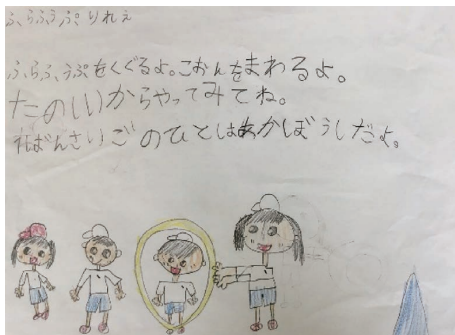 ふらふうぷ りれえ
ふらふうぷをくぐるよ。こおんをまわるよ。
たのしいからやってみてね。
いちばんさいごのひとはあかぼうしだよ。